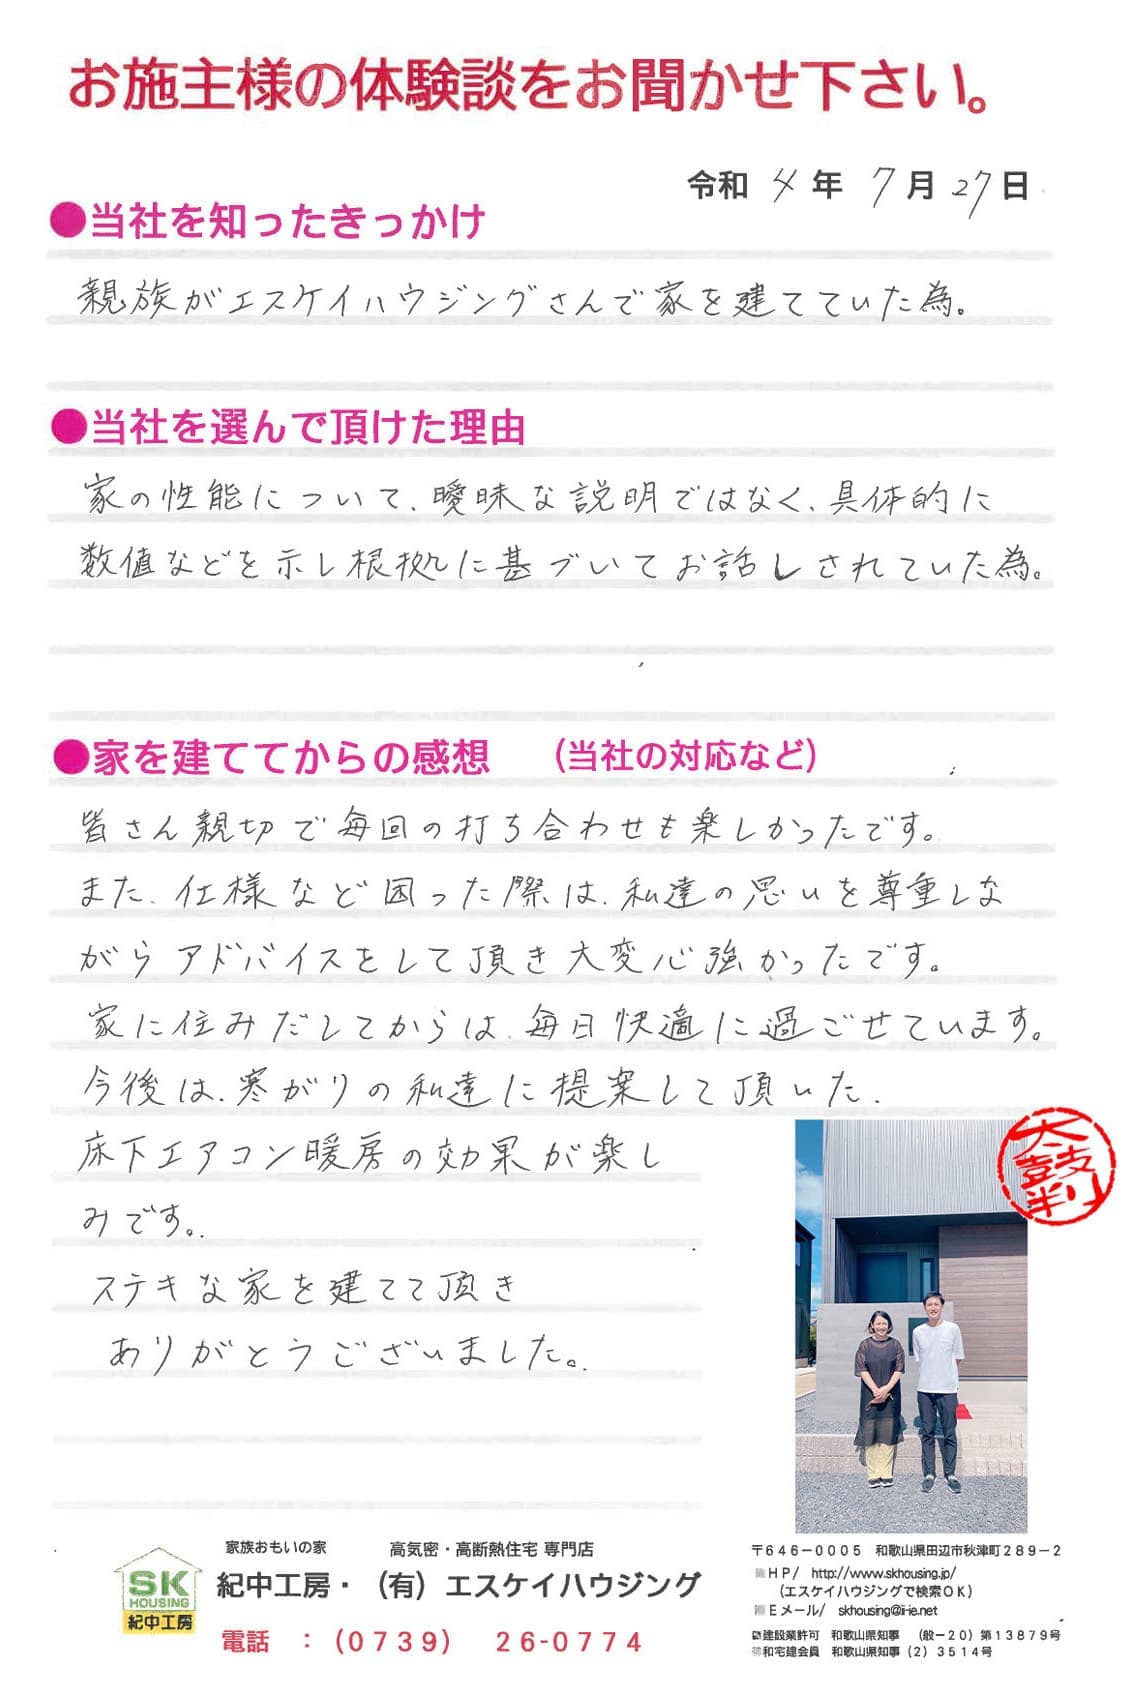 お施主様の体験談をお聞かせ下さい。
令和 4 年 7 月 27 日
●当社を知ったきっかけ
親族がエスケイハウジングさんで家を建てていた為。
●当社を選んで頂けた理由
家の性能について、曖昧な説明ではなく、具体的に
数値などを示し根拠に基づいてお話しされていた為。
●家を建ててからの感想 （当社の対応など）
皆さん親切で毎回の打ち合わせも楽しかったです。
また、仕様など困った際は、私達の思いを尊重しな
がらアドバイスをして頂き大変心強かったです。
家に住みだしてからは、毎日快適に過ごせています。
今後は、寒がりの私達に提案して頂いた、
床下エアコン暖房の効果が楽し
みです。
ステキな家を建てて頂き
ありがとうございました。
太鼓判
SK
HOUSING
紀中工房
家族おもいの家 高気密・高断熱住宅 専門店
紀中工房・（有）エスケイハウジング
電話 ：（０７３９） ２６-０７７４
〒６４６－０００５ 和歌山県田辺市秋津町２８９－２
ＨＰ/ http://www.skhousing.jp/
（エスケイハウジングで検索ＯＫ）
Ｅメール/ skhousing@ii-ie.net
建設業許可 和歌山県知事 （般－２０）第１３８７９号
和宅建会員 和歌山県知事（２）３５１４号